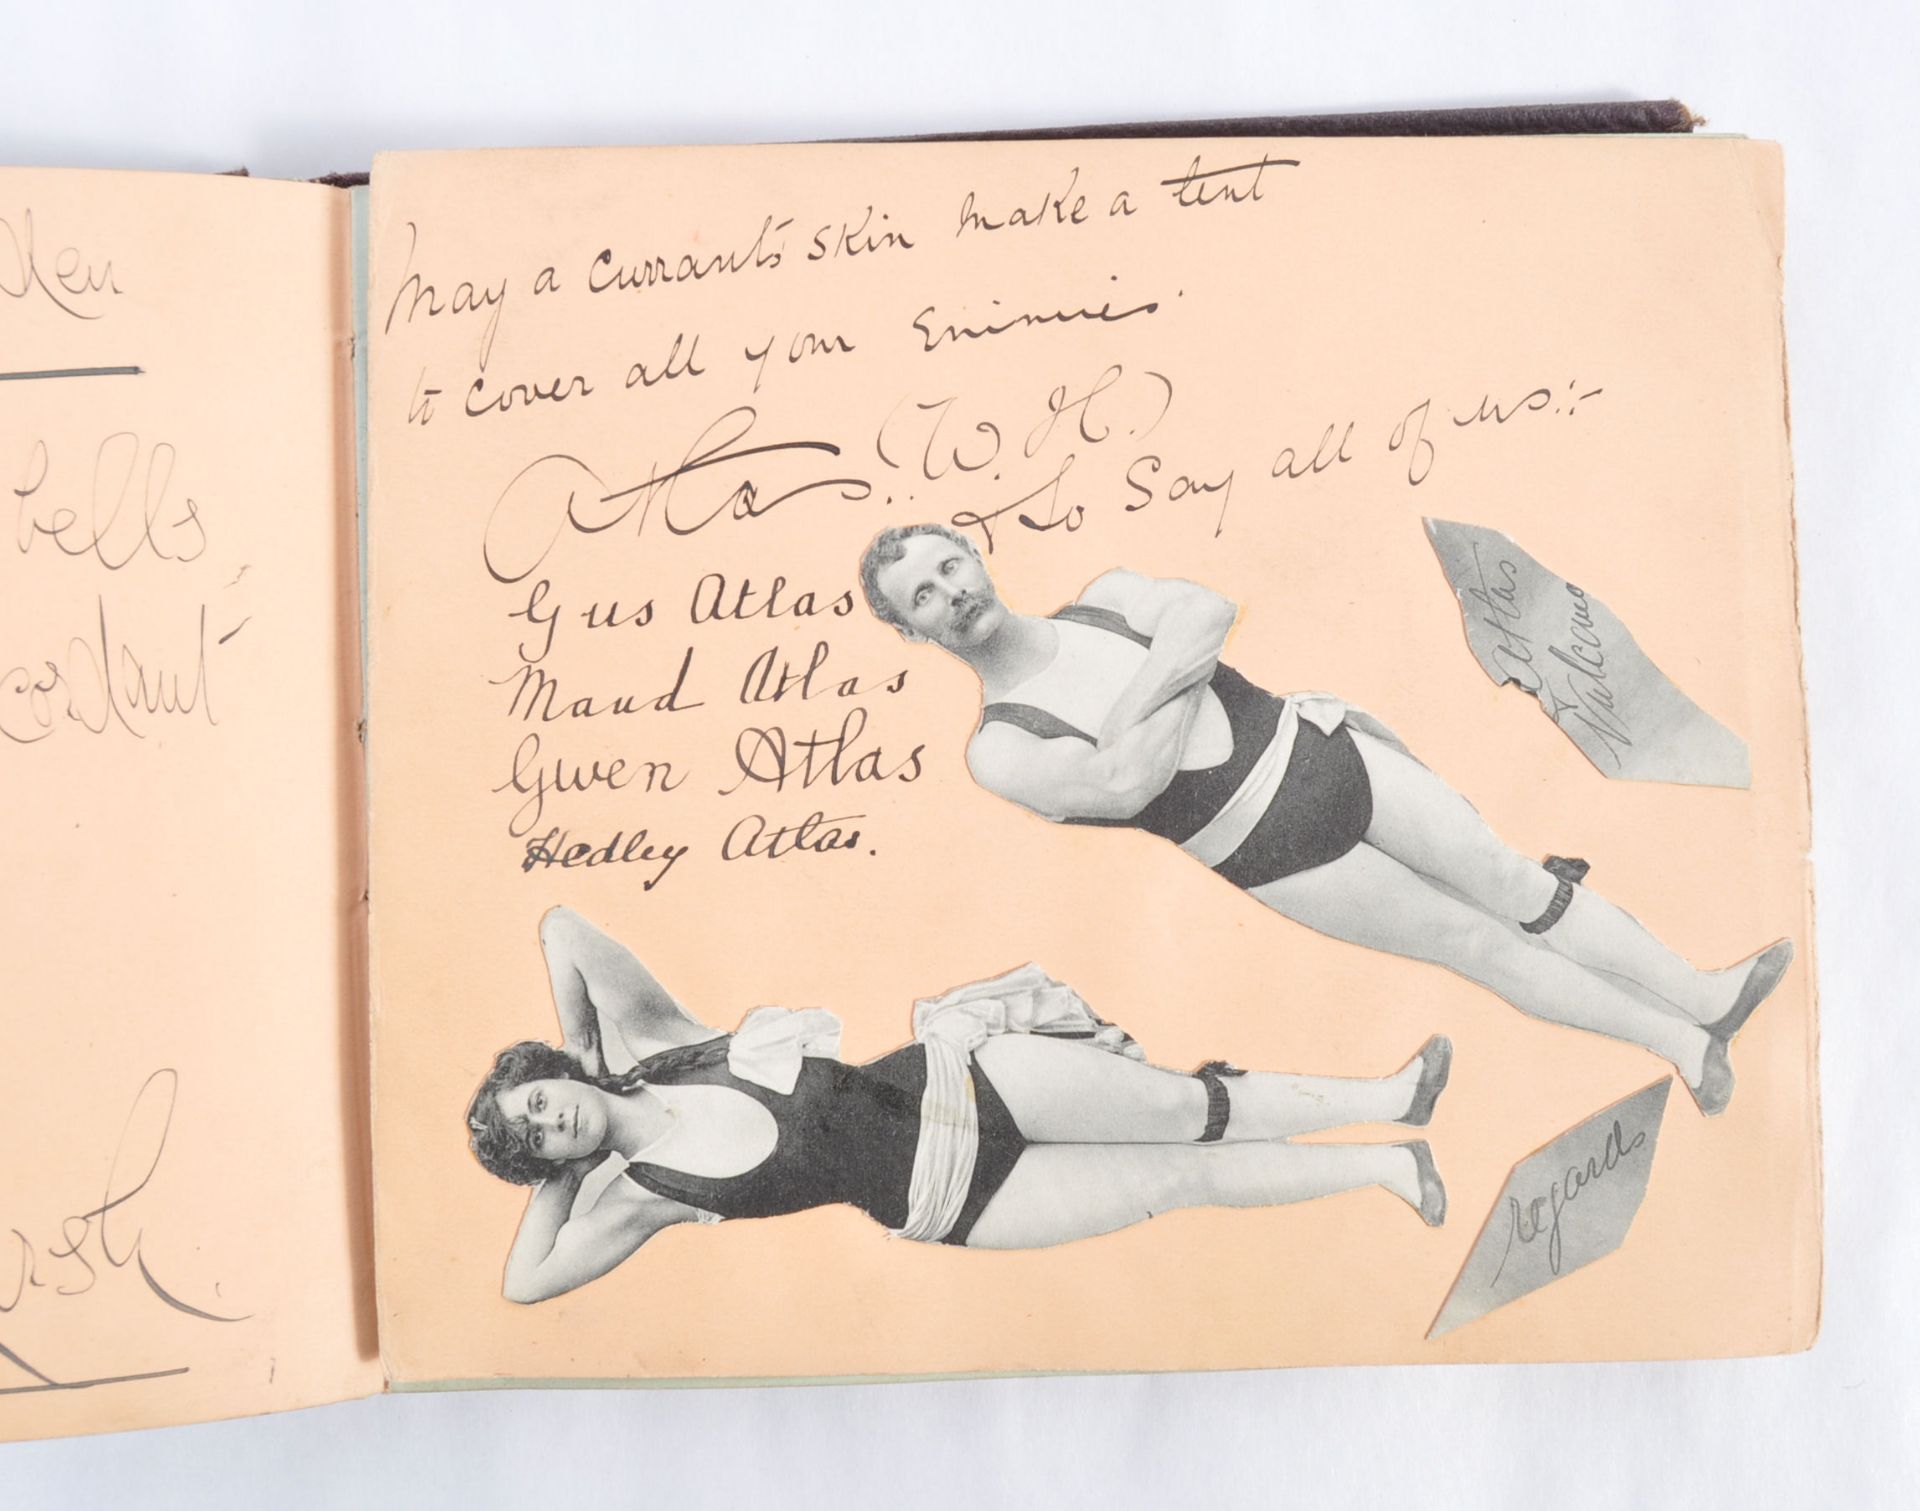 bells
May a currant's skin make a tent
to cover all your Enimies.
Atlas.. (W. H.)
& So Say all of us:-
Gus Atlas
Maud Atlas
Gwen Atlas
Hedley Atlas.
Atlas
& Vulcana
regards